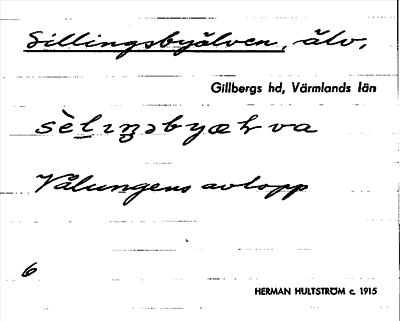 Sillingsbyälven, älv,
Gillbergs hd, Värmlands län
sèlıŋsbyæɫva
Vålungens avlopp
6
HERMAN HULTSTRÖM c. 1915